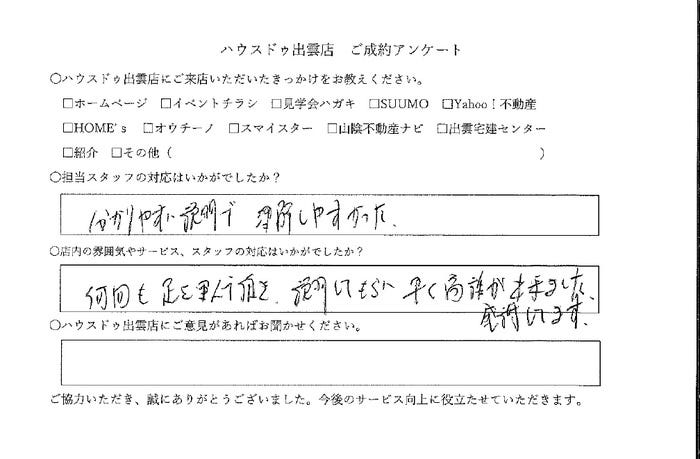 ハウスドゥ出雲店 ご成約アンケート
○ハウスドゥ出雲店にご来店いただいたきっかけをお教えください。
□ホームページ □イベントチラシ □見学会ハガキ □SUUMO □Yahoo！不動産
□HOME's □オウチーノ □スマイスター □山陰不動産ナビ □出雲宅建センター
□紹介 □その他（ ）
○担当スタッフの対応はいかがでしたか？
分かりやすい説明で 理解しやすかった。
○店内の雰囲気やサービス、スタッフの対応はいかがでしたか？
何回も足を運んで頂き、説明してもらい 早く商談が出来ました。
感謝してます。
○ハウスドゥ出雲店にご意見があればお聞かせください。
ご協力いただき、誠にありがとうございました。今後のサービス向上に役立たせていただきます。